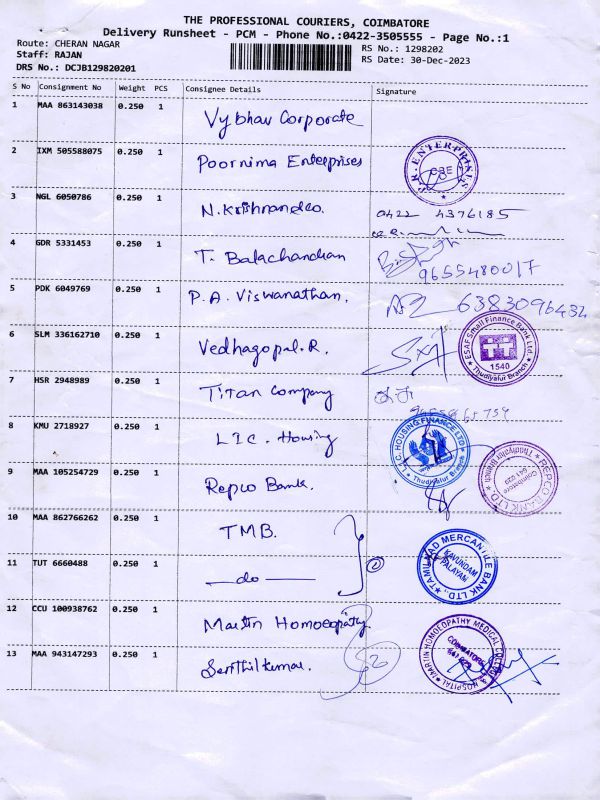 THE PROFESSIONAL COURIERS, COIMBATORE
Delivery Runsheet - PCM - Phone No.:0422-3505555 - Page No.:1
Route: CHERAN NAGAR
Staff: RAJAN
DRS No.: DCJB129820201
RS No.: 1298202
RS Date: 30-Dec-2023
S No Consignment No Weight PCS Consignee Details Signature
1 MAA 863143038 0.250 1 Vybhav Corporate
2 IXM 505588075 0.250 1 Poornima Enterprises
R. ENTERPRISES
CBE
3 NGL 6050786 0.250 1 N. Krishnan &co. 0422 4376185
4 GDR 5331453 0.250 1 T. Balachandran
9655480017
5 PDK 6049769 0.250 1 P.A. Viswanathan. 6383096432
6 SLM 336162710 0.250 1 Vedhagopal.R.
ESAF Small Finance Bank Ltd.
1540
Thudiyalur Branch
7 HSR 2948989 0.250 1 Titan Company
8 KMU 2718927 0.250 1 LIC. Housing
L.I.C. HOUSING FINANCE LTD
Thudiyalur Branch
9 MAA 105254729 0.250 1 Repco Bank.
REPCO BANK LTD
Thudiyalur Branch
Coimbatore
10 MAA 862766262 0.250 1 TMB.
11 TUT 6660488 0.250 1 —do— 2
TAMILNAD MERCANTILE BANK LTD.,
KAVUNDAM
PALAYAM
12 CCU 100938762 0.250 1 Martin Homoeopathy
MARTIN HOMOEOPATHY MEDICAL COLLEGE & HOSPITAL
COIMBATORE
13 MAA 943147293 0.250 1 Senthilkumar.